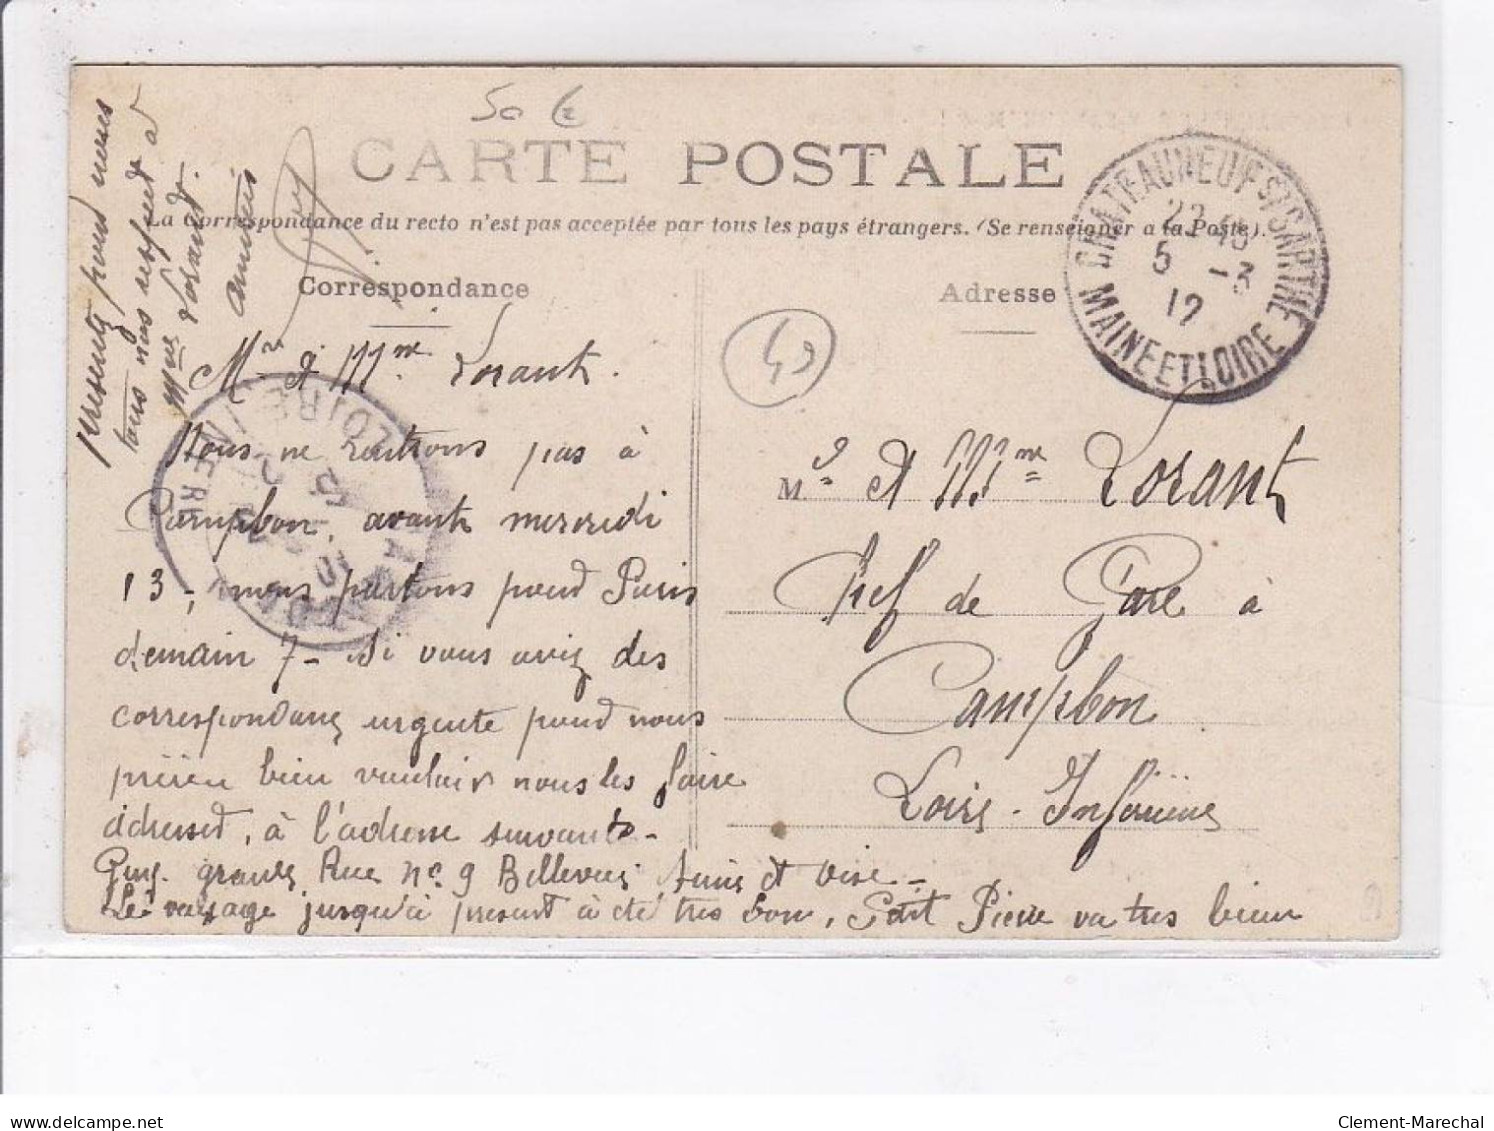 50 €
CARTE POSTALE
La Correspondance du recto n'est pas acceptée par tous les pays étrangers. (Se renseigner a la Poste).
Correspondance
Adresse
CHATEAUNEUF S/SARTHE
23 45
5 -3
12
MAINE ET LOIRE
49
Mr & Mme Lorant.
Nous ne rentrons pas à
Campbon, avant mercredi
13, nous partons pour Paris
demain 7 - Si vous aviez des
correspondances urgente pour nous
prière bien vouloir nous les faire
adresser, à l'adresse suivante -
Rue No 9 Bellevue et Oise -
Le voyage jusqu'à présent à été très bon, Petit Pierre va très bien
présentez pour nous
tous nos respect à
Mme Lorant.
amitiés
M. & Mme Lorant
Chef de Gare à
Campbon
Loire - Inférieure
LOIRE INFRE
delcampe.net
Clement-Marechal